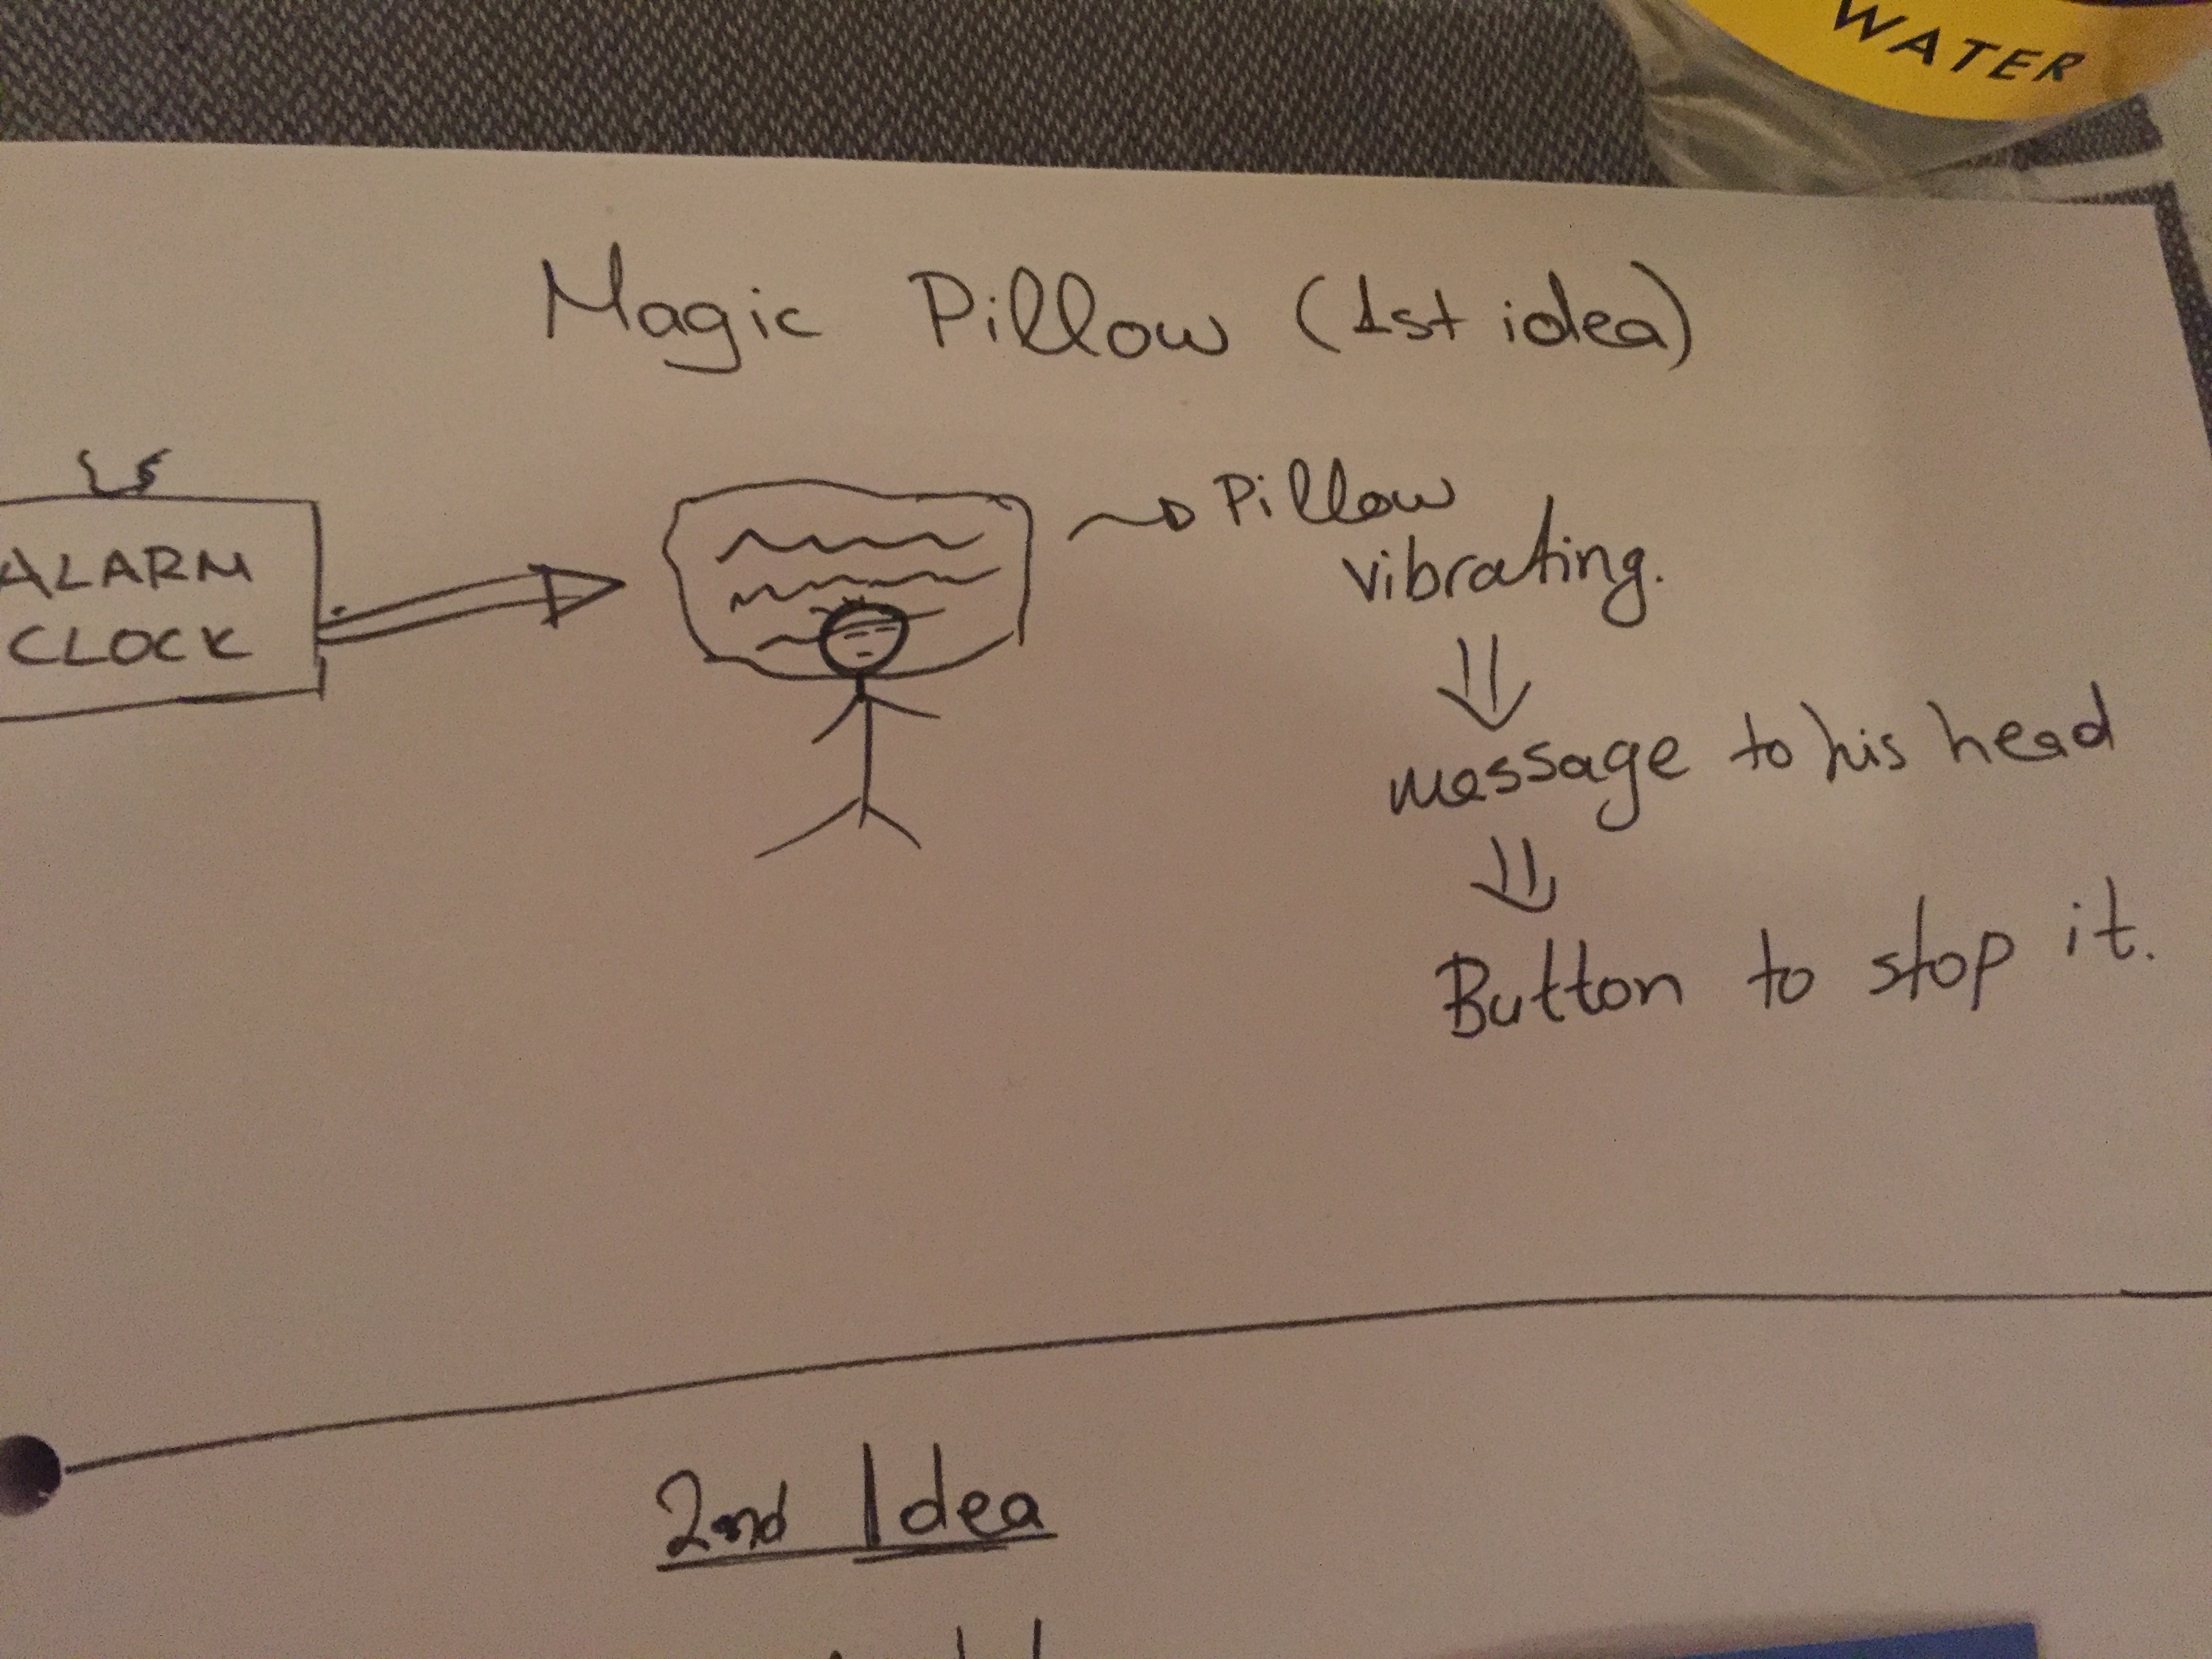 WATER
Magic Pillow (1st idea)
ALARM
CLOCK
Pillow
vibrating.
message to his head
Button to stop it.
2nd Idea